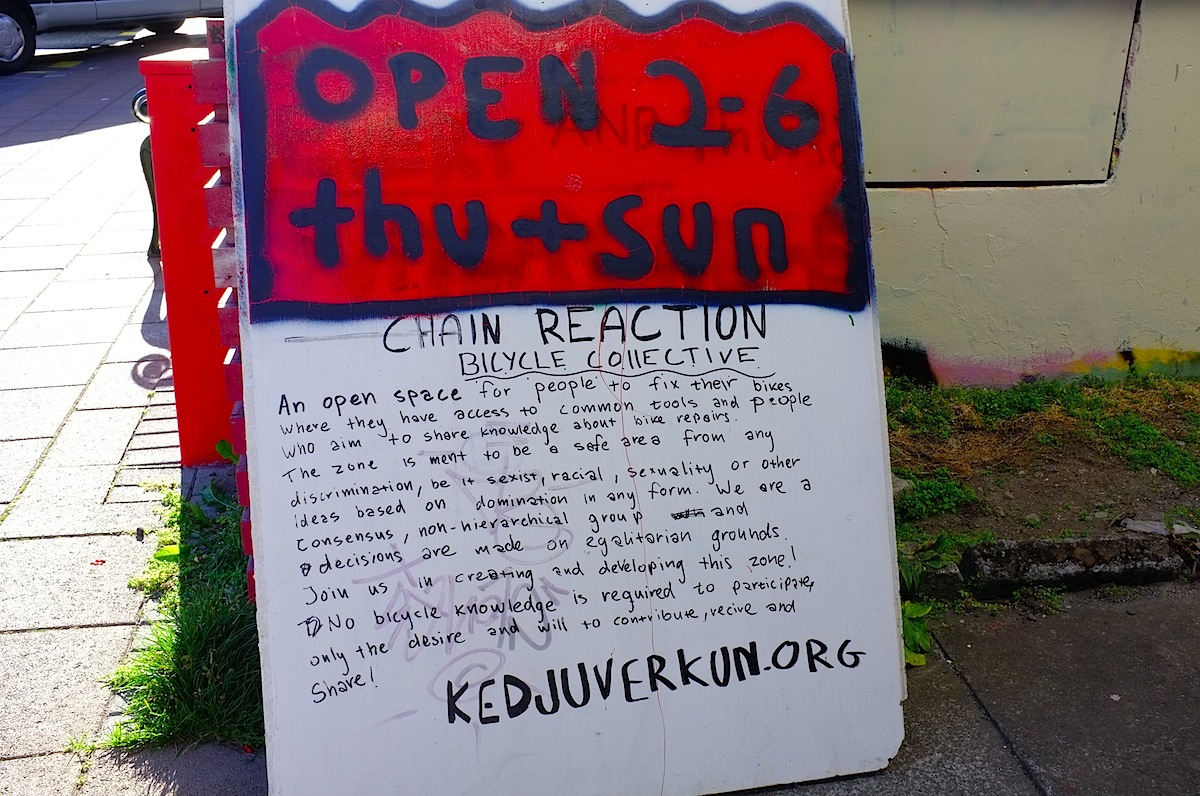 OPEN 2-6
thu + sun
CHAIN REACTION
BICYCLE COllECTIVE
An open space for people to fix their bikes
where they have access to common tools and people
who aim to share knowledge about bike repairs.
The zone is ment to be a safe area from any
discrimination, be it sexist, racial, sexuality or other
ideas based on domination in any form. We are a
consensus, non-hierarchical group and
decisions are made on egalitarian grounds.
Join us in creating and developing this zone!
No bicycle knowledge is required to participate,
only the desire and will to contribute, recive and
Share!
KEDJUVERKUN.ORG